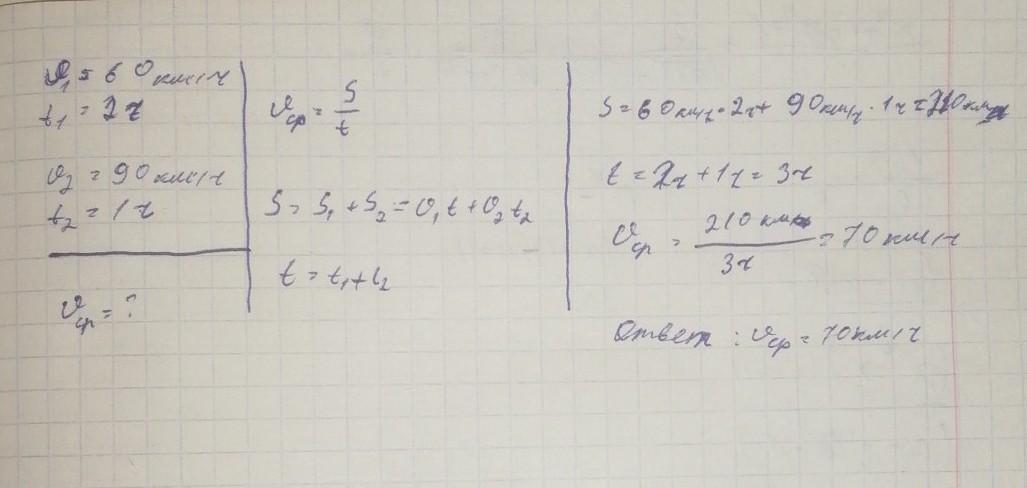 υ₁ = 60 км/ч
t₁ = 2ч
υ₂ = 90 км/ч
t₂ = 1ч
υср = ?
υср = S/t
S = S₁ + S₂ = υ₁t + υ₂t₂
t = t₁ + t₂
S = 60 км/ч · 2ч + 90 км/ч · 1ч = 210 км
t = 2ч + 1ч = 3ч
υср = 210 км/3ч = 70 км/ч
Ответ : υср = 70 км/ч